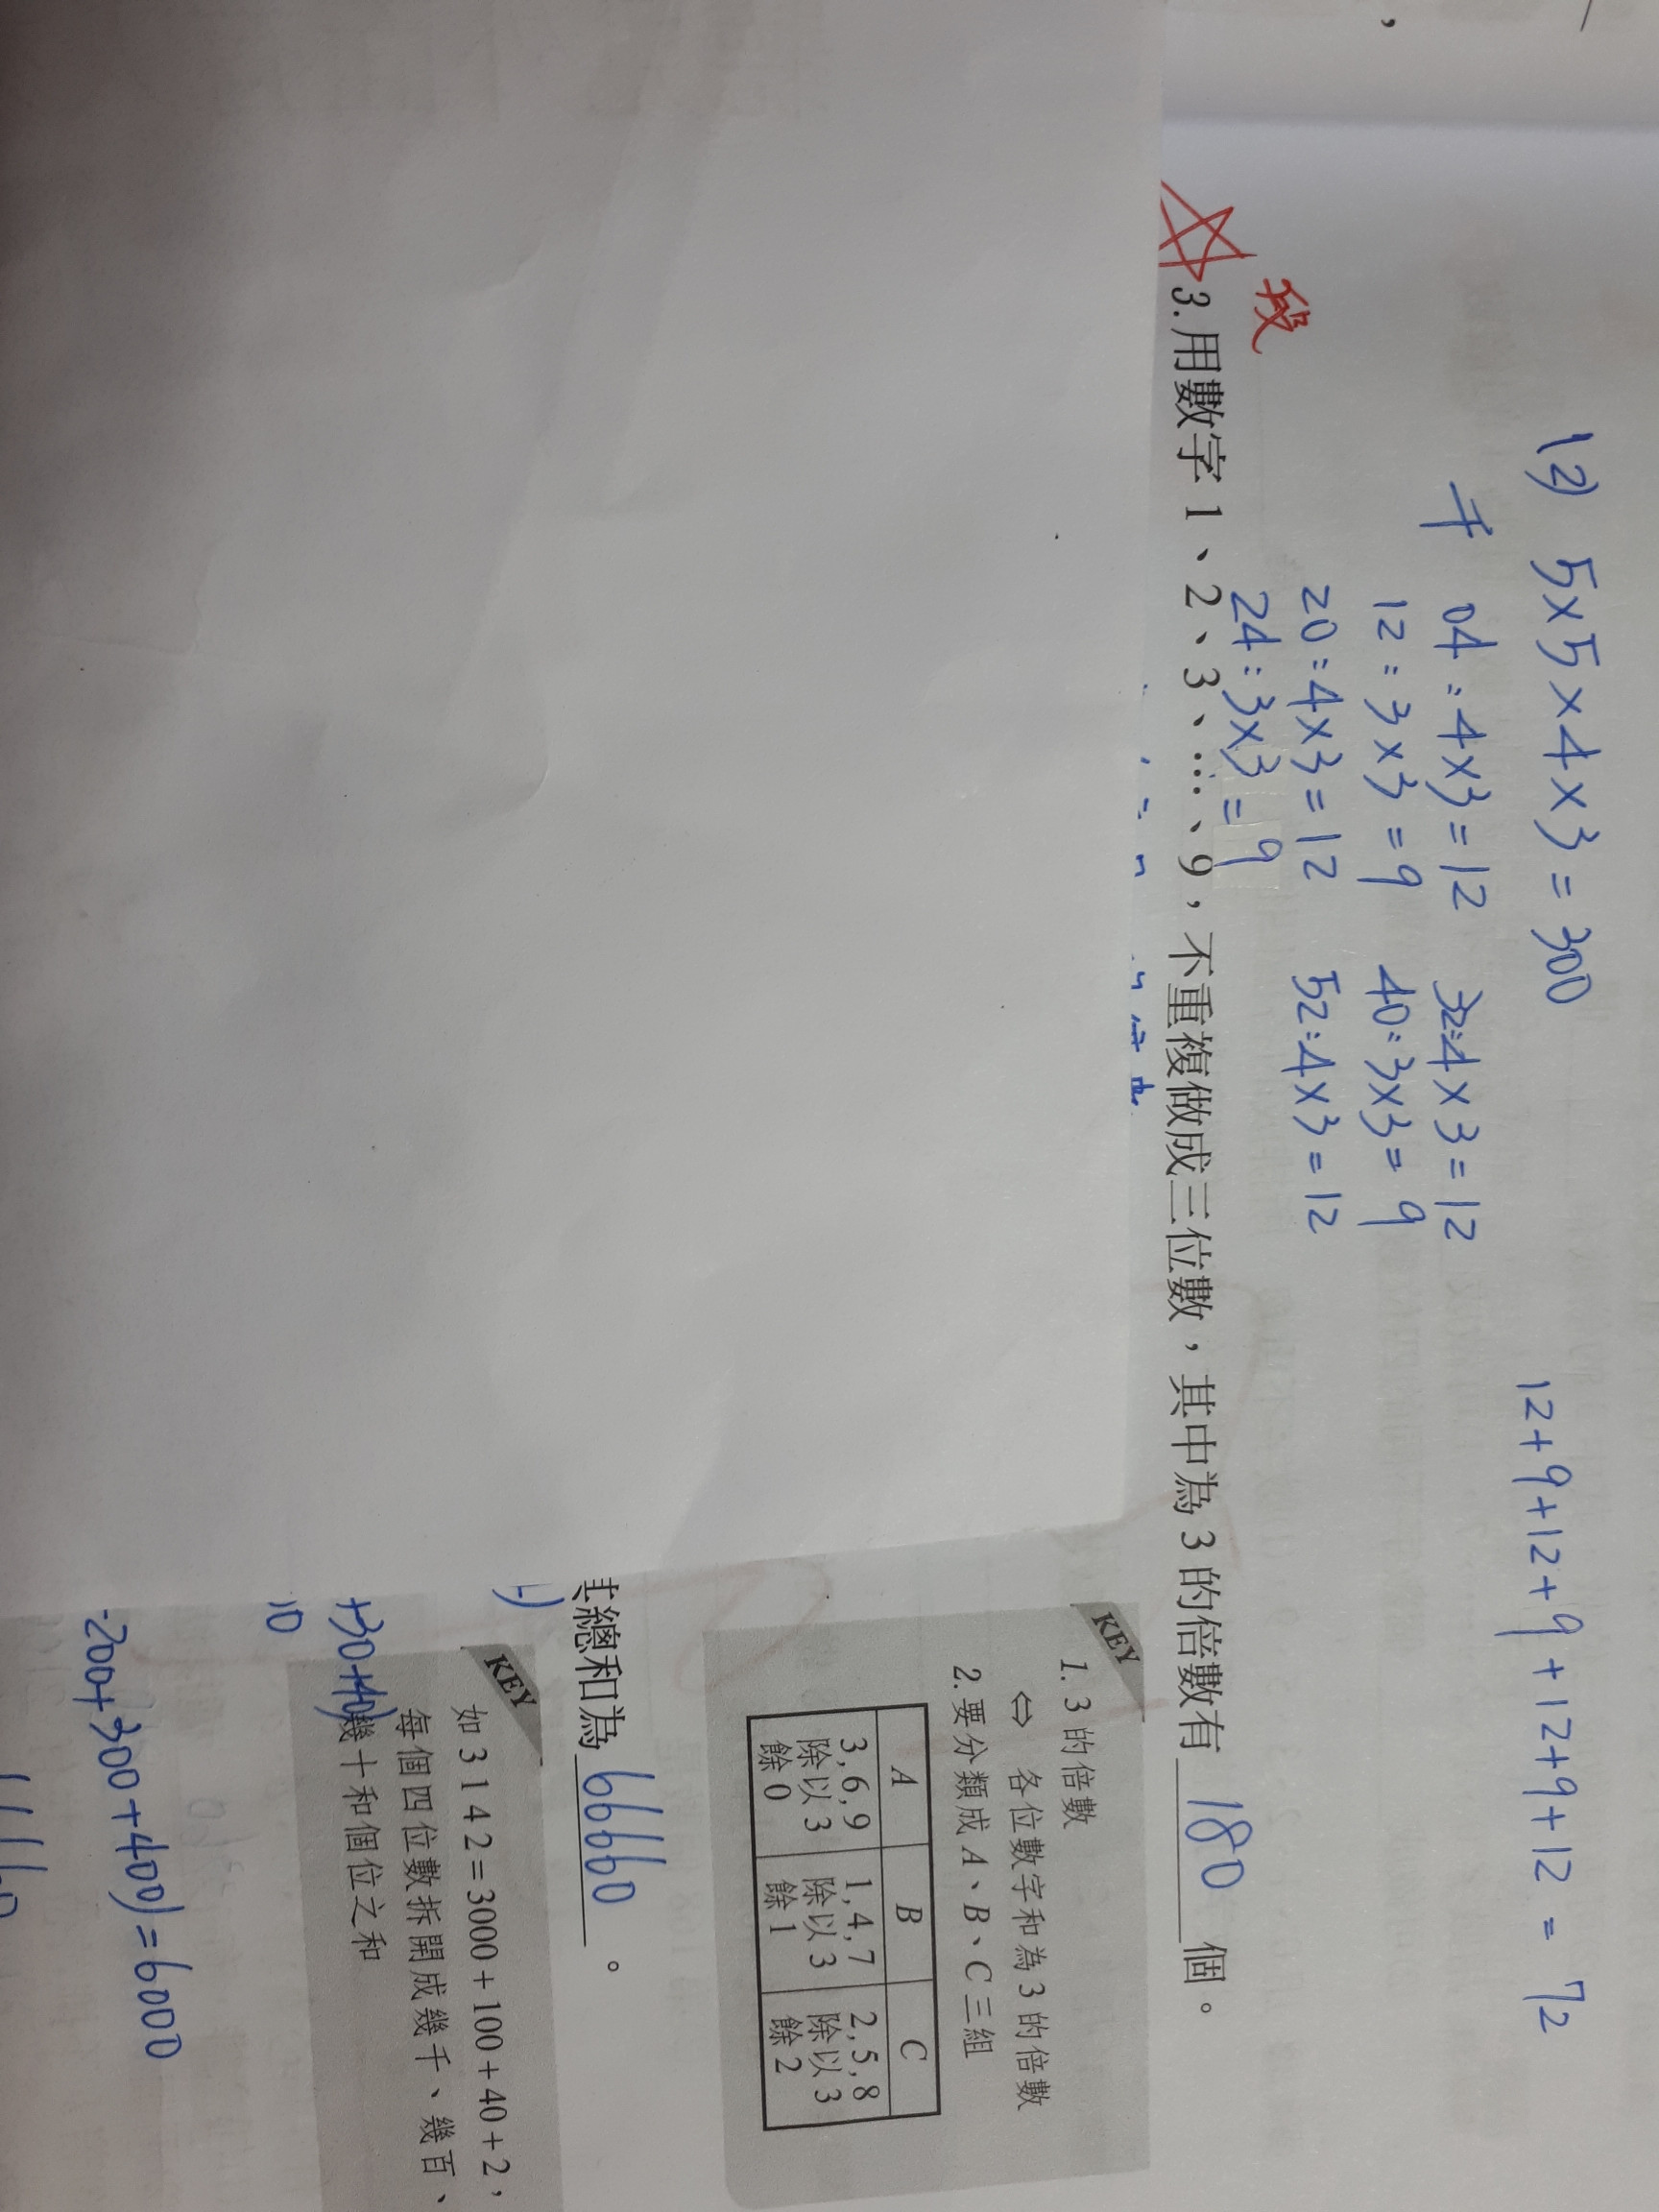 (2) 5×5×4×3=300
12+9+12+9+12+9+12 = 72
04:4×3=12 32:4×3=12
12:3×3=9 40:3×3=9
20:4×3=12 52:4×3=12
24:3×3=9
3.用數字 1、2、3、…、9,不重複做成三位數,其中為 3 的倍數有 180 個。
KEY
1. 3 的倍數
⇔ 各位數字和為 3 的倍數
2.要分類成 A、B、C 三組
A B C
3,6,9 1,4,7 2,5,8
除以 3 除以 3 除以 3
餘 0 餘 1 餘 2
其總和為 66660 。
KEY
如 3142=3000+100+40+2,
每個四位數拆開成幾千、幾百、
幾十和個位之和
+30+40)
10
-200+300+400)=6000